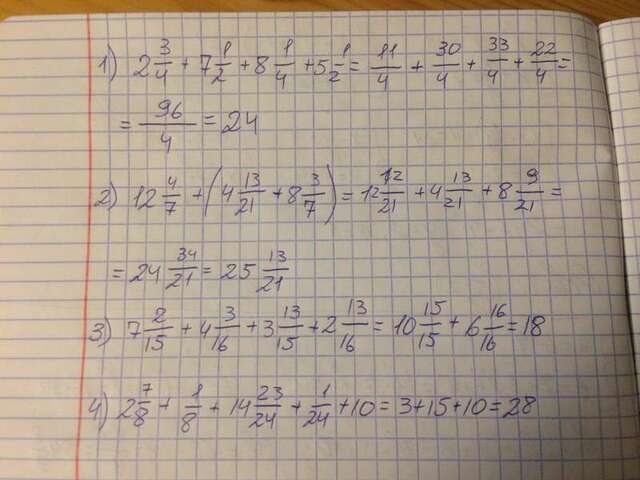 1) 2 3/4 + 7 1/2 + 8 1/4 + 5 1/2 = 11/4 + 30/4 + 33/4 + 22/4 =
= 96/4 = 24
2) 12 4/7 + (4 13/21 + 8 3/7) = 12 12/21 + 4 13/21 + 8 9/21 =
= 24 34/21 = 25 13/21
3) 7 2/15 + 4 3/16 + 3 13/15 + 2 13/16 = 10 15/15 + 6 16/16 = 18
4) 2 7/8 + 1/8 + 14 23/24 + 1/24 + 10 = 3 + 15 + 10 = 28